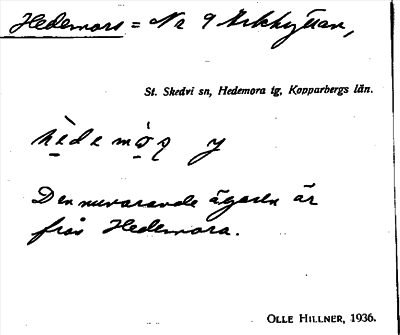 Hedemors = Nr 9 Arkhyttan,
St. Skedvi sn, Hedemora tg, Kopparbergs län.
hèdemo̠ṣ y
Den nuvarande ägaren är
från Hedemora.
OLLE HILLNER, 1936.